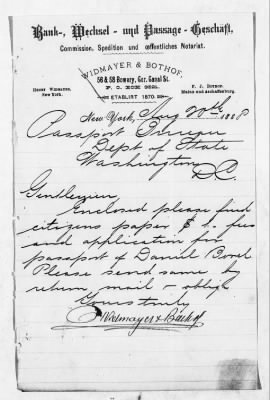 Bank-, Wechsel- und Passage-Geschäft,
Commission, Spedition und oeffentliches Notariat.
WIDMAYER & BOTHOF,
56 & 58 Bowery, Cor. Canal St.
P. O. BOX
ETABLIRT 1870.
Henry Widmayer,
New York.
F. J. Bothof,
Mainz und Aschaffenburg.
New York, Aug 20th 1888
Passport Bureau
Dept of State
Washington
D.C.
Gentlemen
Enclosed please find
citizens paper $1. fees
and application for
passport of Daniel
Please send same by
return mail & oblige
Yours truly
Widmayer & Bothof